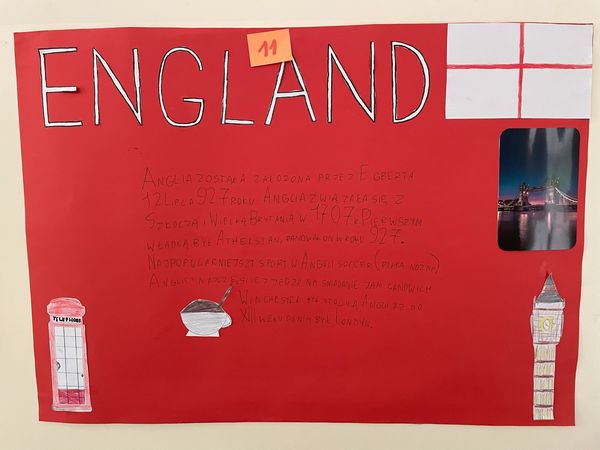 ENGLAND
11
ANGLIA ZOSTAŁA ZAŁOŻONA PRZEZ EGBERTA
12 LIPCA 927 ROKU ANGLIA ZWIĄZAŁA SIĘ Z
SZKOCJĄ I WIELKĄ BRYTANIĄ W 1707 R PIERWSZYM
WŁADCĄ BYŁ ATHELSTAN, PANOWAŁ ON W ROKU 927.
NAJPOPULARNIEJSZY SPORT W ANGLII SOCCER (PIŁKA NOŻNA)
ANGLICY NAJCZĘŚCIEJ JEDZĄ NA ŚNIADANIE JAM SANDWICH
WINCHESTER STOLICĄ ANGLII DO
XII WIEKU PONIM BYŁ LONDYN.
TELEPHONE